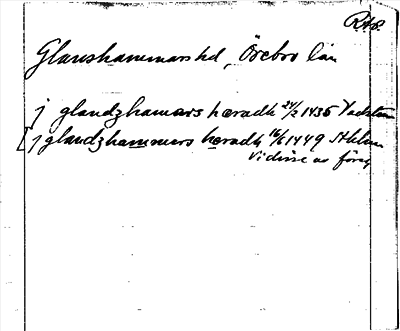 RA8.
Glanshammars hd, Örebro län
j glandzhamars hæradh 24/2 1435
[j glandzhammars hæradh 16/6 1449 Sthlm
Vidisse av föreg